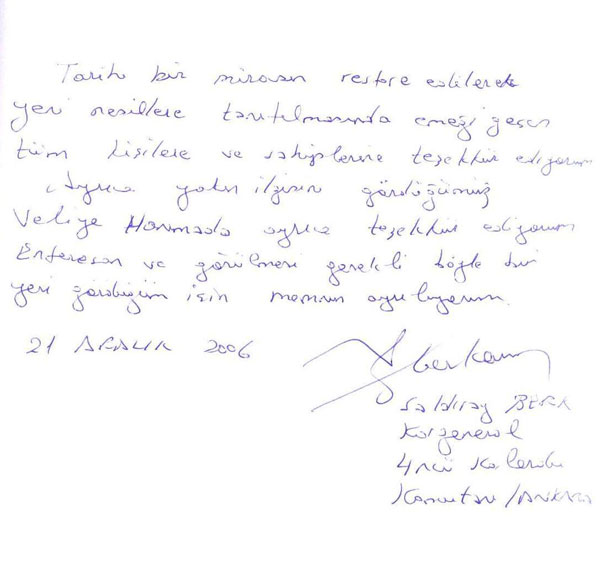 Tarihi bir mirasın restore edilerek
yeni nesillere tanıtılmasında emeği geçen
tüm kişilere ve sahiplerine teşekkür ediyorum
Ayrıca yakın ilgisini gördüğümüz
Veliye Hanımada ayrıca teşekkür ediyorum
Enteresan ve görülmesi gerekli böyle bir
yeri gördüğüm için memnun ayrılıyorum.
21 ARALIK 2006
Saldıray BERK
Korgeneral
4ncü Kolordu
Komutanı/ANKARA